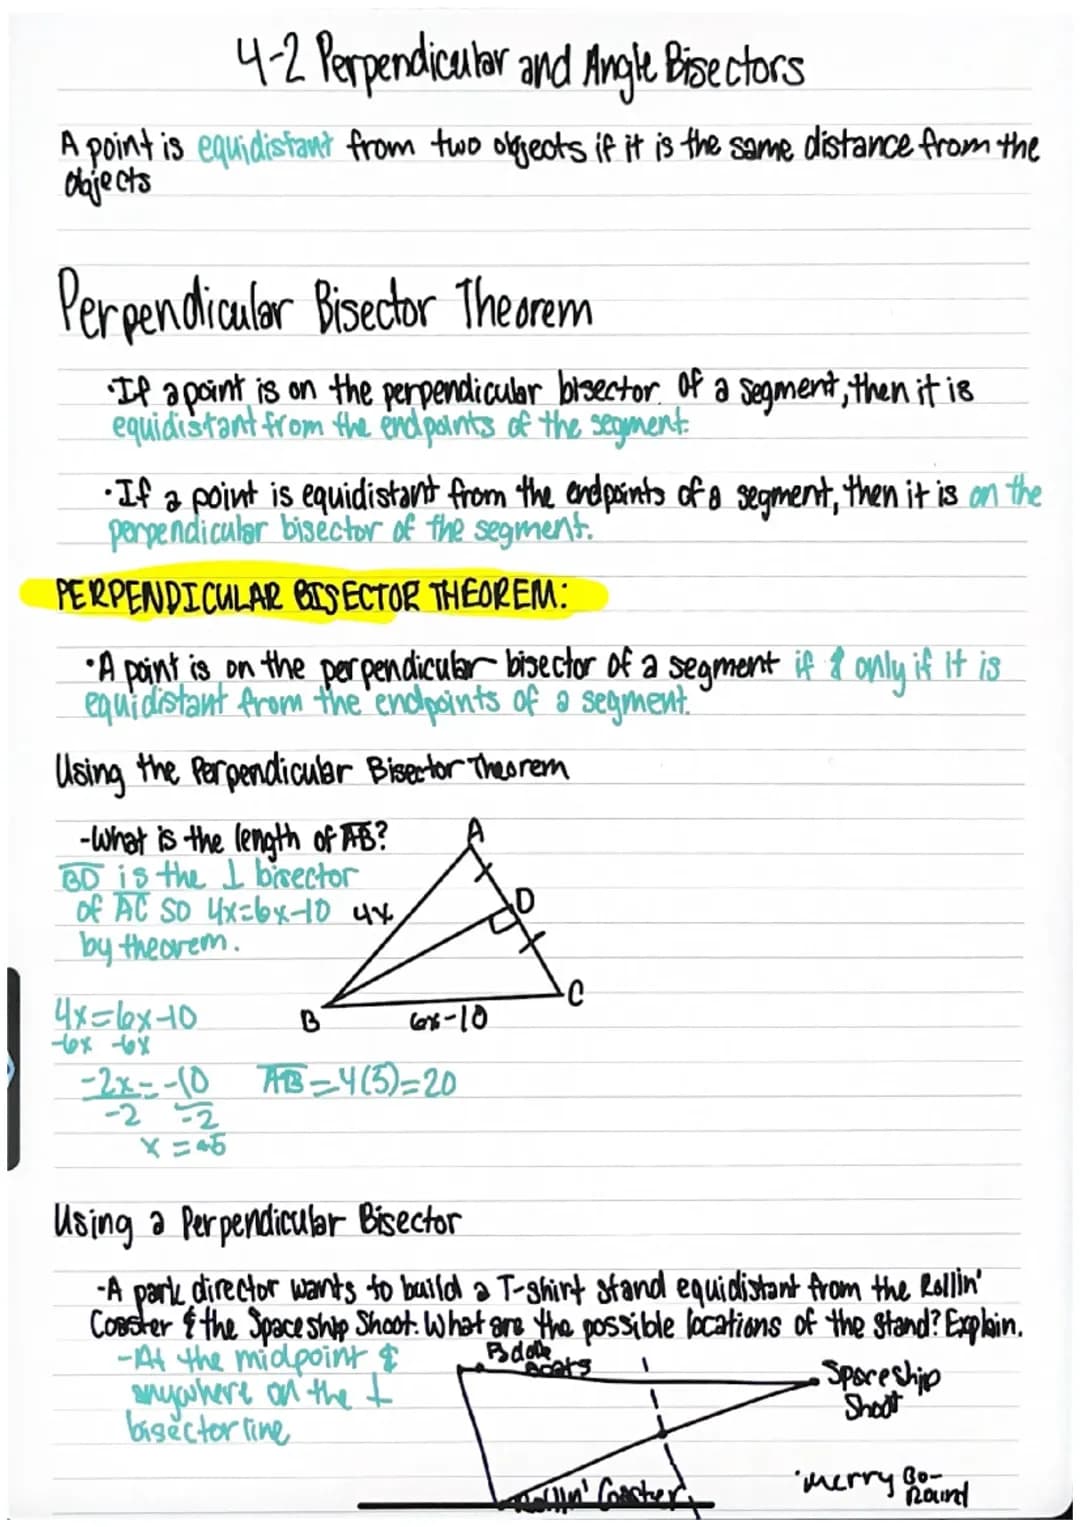 4-2 Perpendicular and Angle Bisectors
A point is equidistant from two objects if it is the same distance from the
objects
Perpendicular Bisector Theorem
•If a point is on the perpendicular bisector of a segment, then it is
equidistant from the endpoints of the segment.
•If a point is equidistant from the endpoints of a segment, then it is on the
perpendicular bisector of the segment.
PERPENDICULAR BISECTOR THEOREM:
•A point is on the perpendicular bisector of a segment if & only if it is
equidistant from the endpoints of a segment.
Using the Perpendicular Bisector Theorem
-What is the length of AB?
BD is the ⊥ bisector
of AC so 4x=6x-10
by theorem.
A
D
4x
C
B
6x-10
4x=6x-10
-6x -6x
-2x=-10
-2 -2
x=5
AB=4(5)=20
Using a Perpendicular Bisector
-A park director wants to build a T-shirt stand equidistant from the Rollin'
Coaster & the Spaceship Shoot. What are the possible locations of the stand? Explain.
-At the midpoint &
anywhere on the ⊥
bisector line
Boats
Spaceship
Shoot
Rollin' Coaster
•Merry Go-
Round